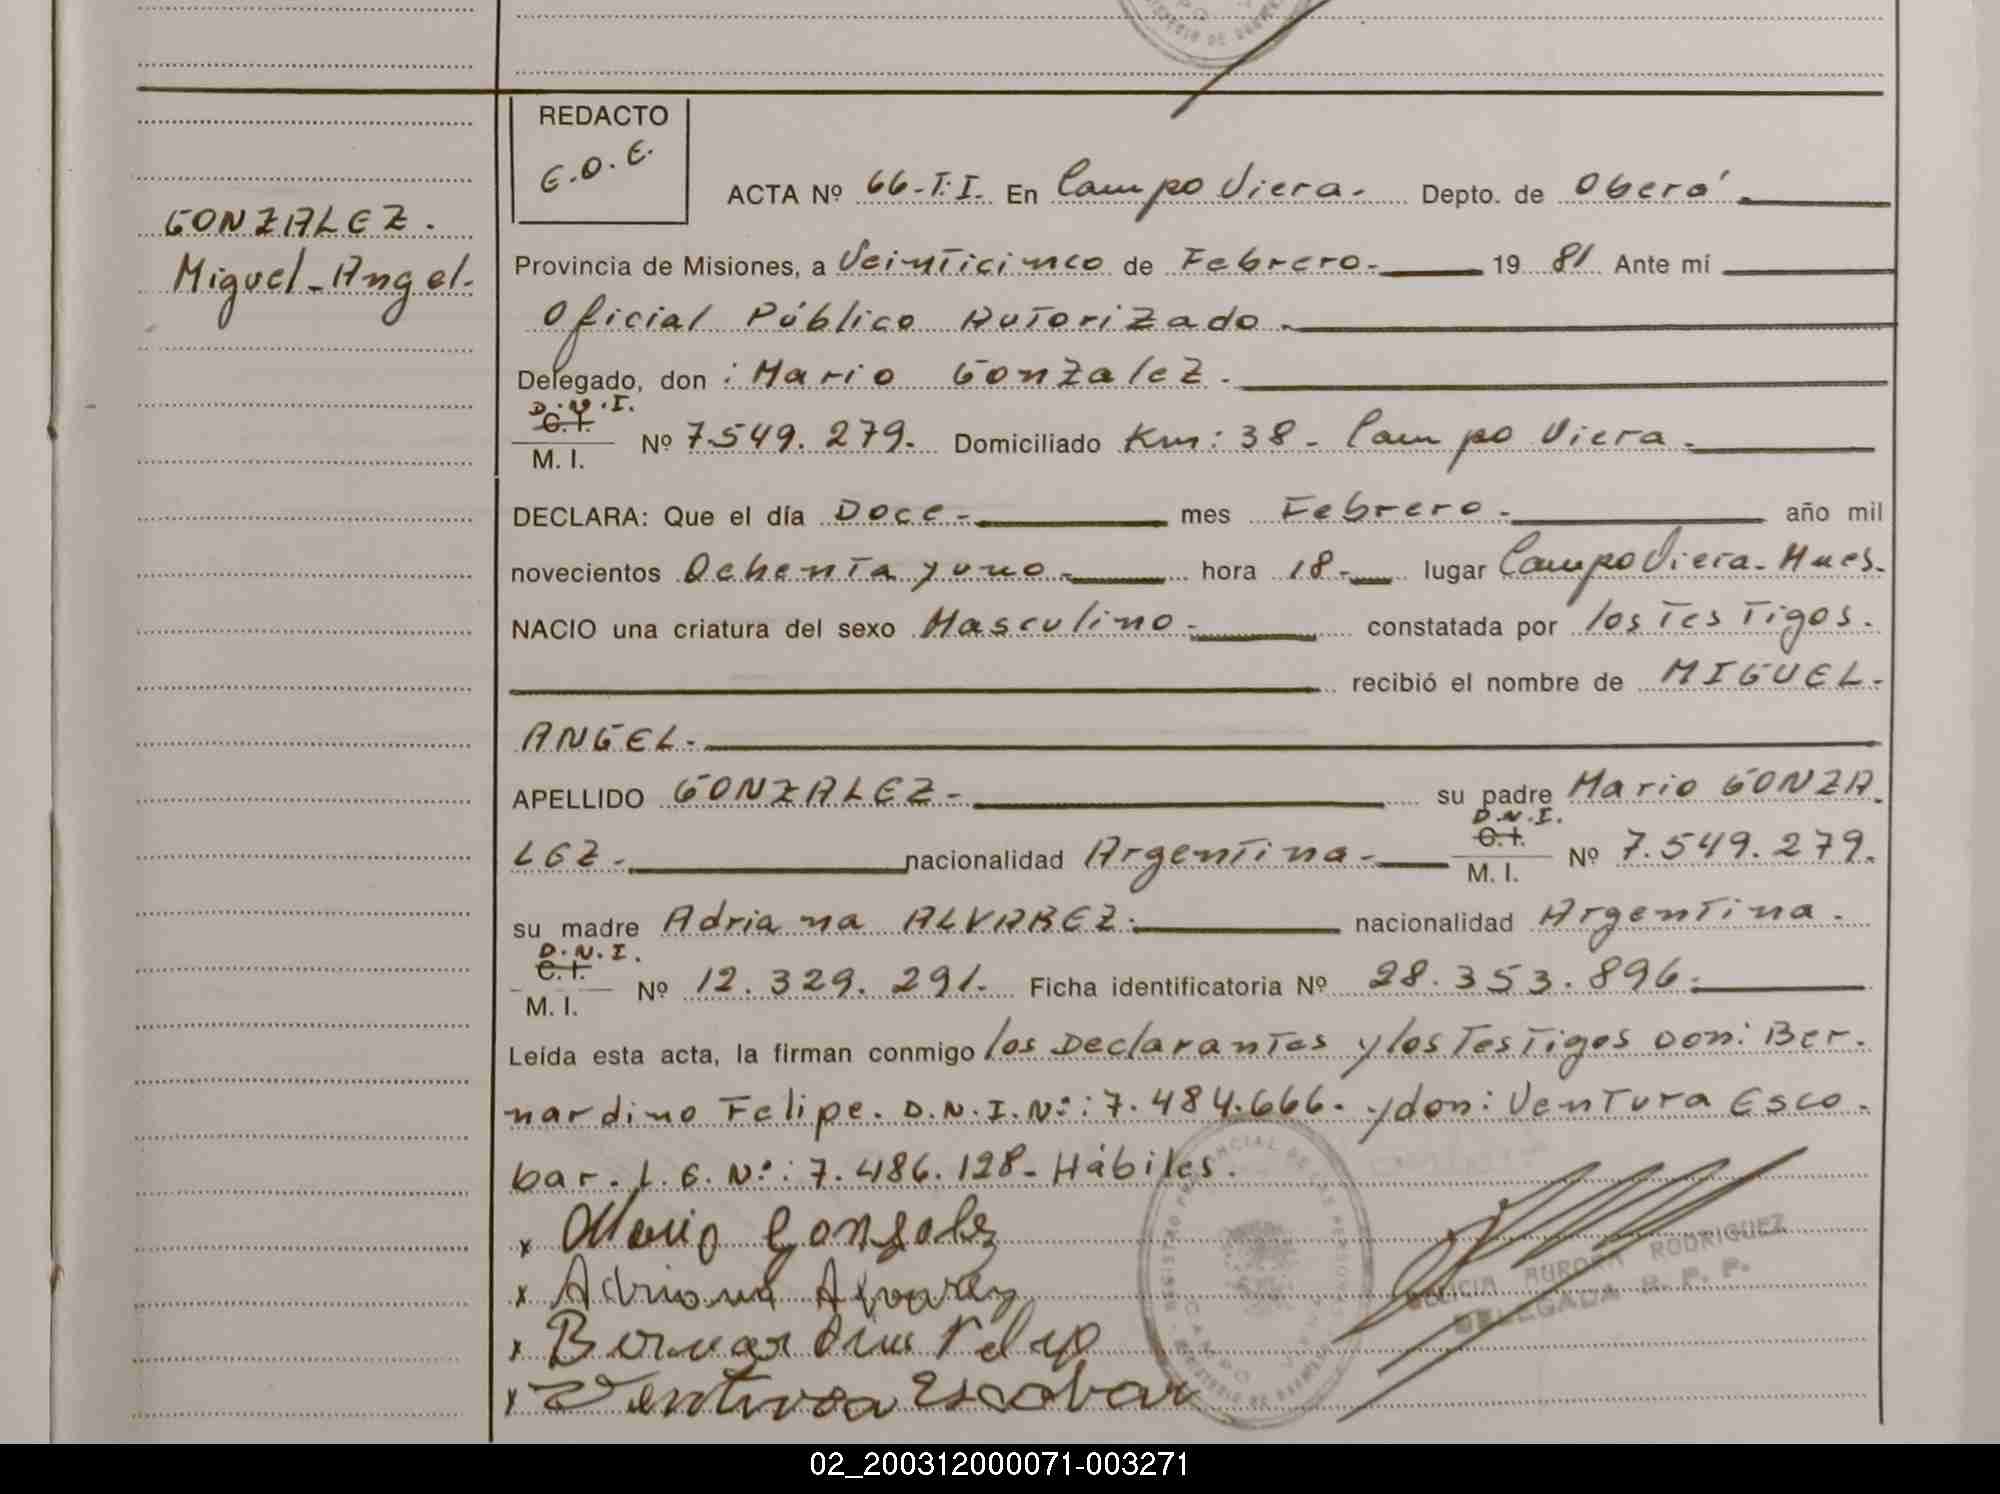 REDACTO
E.O.E.
ACTA Nº 66-T.I. En Campo Viera.- Depto. de Oberá
GONZALEZ.
Miguel-Angel.
Provincia de Misiones, a Veinticinco de Febrero.- 19 81 Ante mí
Oficial Público Autorizado.-
Delegado, don : Mario Gonzalez.
D.N.I.
C.I.
M. I. Nº 7.549.279.- Domiciliado Km: 38- Campo Viera.-
DECLARA: Que el día Doce.- mes Febrero.- año mil
novecientos Ochenta y uno.- hora 18- lugar Campo Viera. Mnes.
NACIO una criatura del sexo Masculino.- constatada por los Testigos.
recibió el nombre de MIGUEL-
ANGEL.-
APELLIDO GONZALEZ.- su padre Mario GONZA
LEZ.- nacionalidad Argentina.- D.N.I. C.I. M. I. Nº 7.549.279.
su madre Adriana ALVAREZ.- nacionalidad Argentina.
D.N.I.
C.I.
M. I. Nº 12.329.291.- Ficha identificatoria Nº 28.353.896.
Leída esta acta, la firman conmigo los Declarantes y los Testigos Don: Ber-
nardino Felipe. D.N.I.Nº: 7.484.666.- y don: Ventura Esco-
bar. L.E. Nº: 7.486.128- Hábiles.
x Mario Gonzalez
x Adriana Alvarez
x Bernardino Felip
x Ventura Escobar
REGISTRO PROVINCIAL DE LAS PERSONAS
CAMPO VIERA
AURORA RODRIGUEZ
DELEGADA R. P. P.
02_200312000071-003271